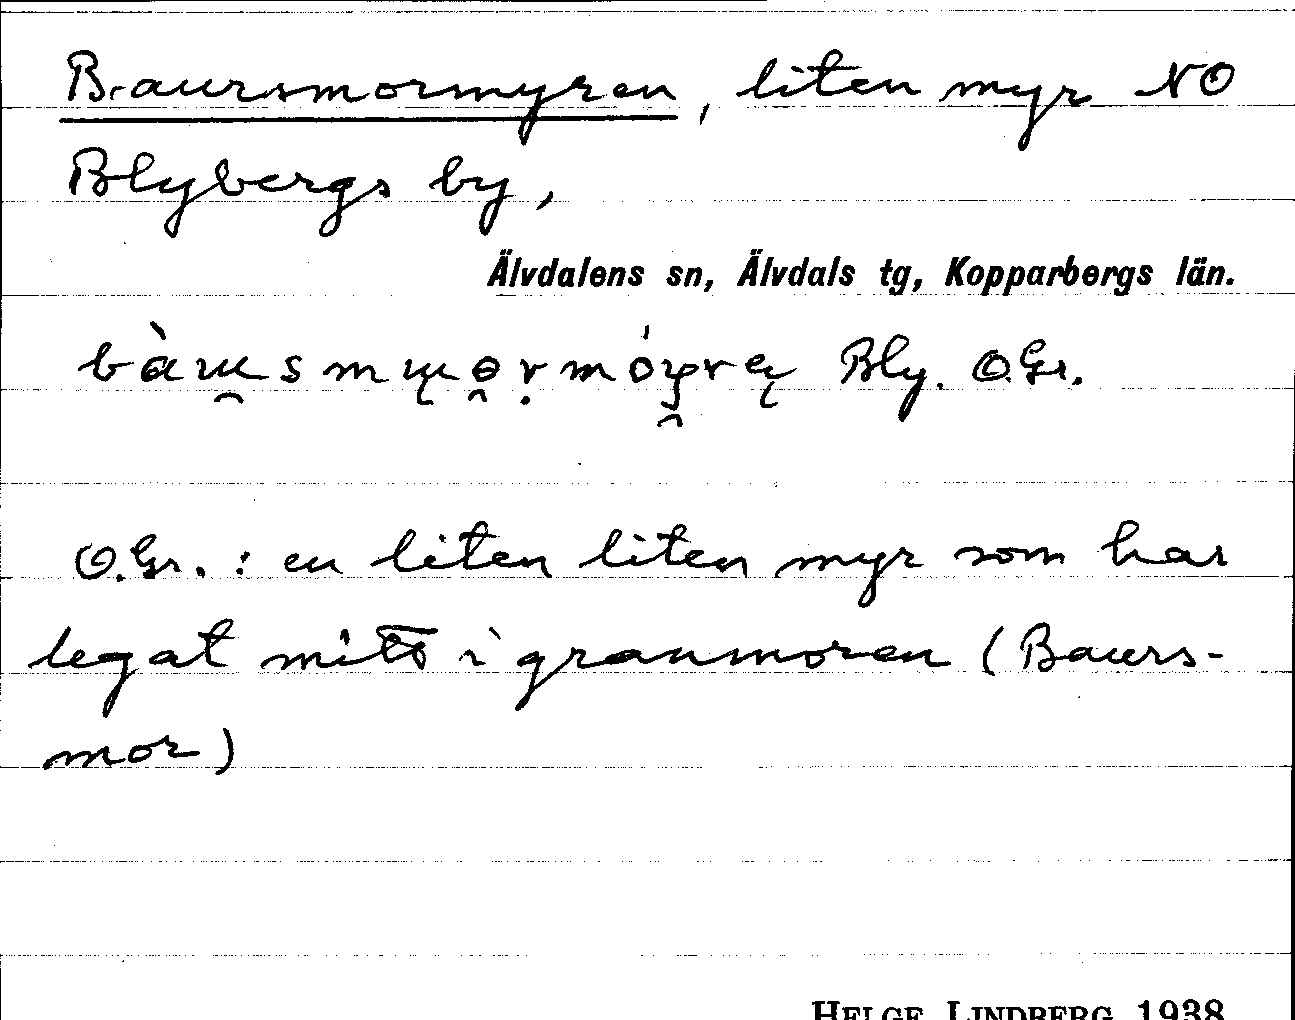 Baursmormyren, liten myr NO
Blybergs by,
Älvdalens sn, Älvdals tg, Kopparbergs län.
Bly. O.Gr.
O.Gr. : en liten liten myr som har
legat mitt i granmoren (Baurs-
mor)
HELGE LINDBERG 1938